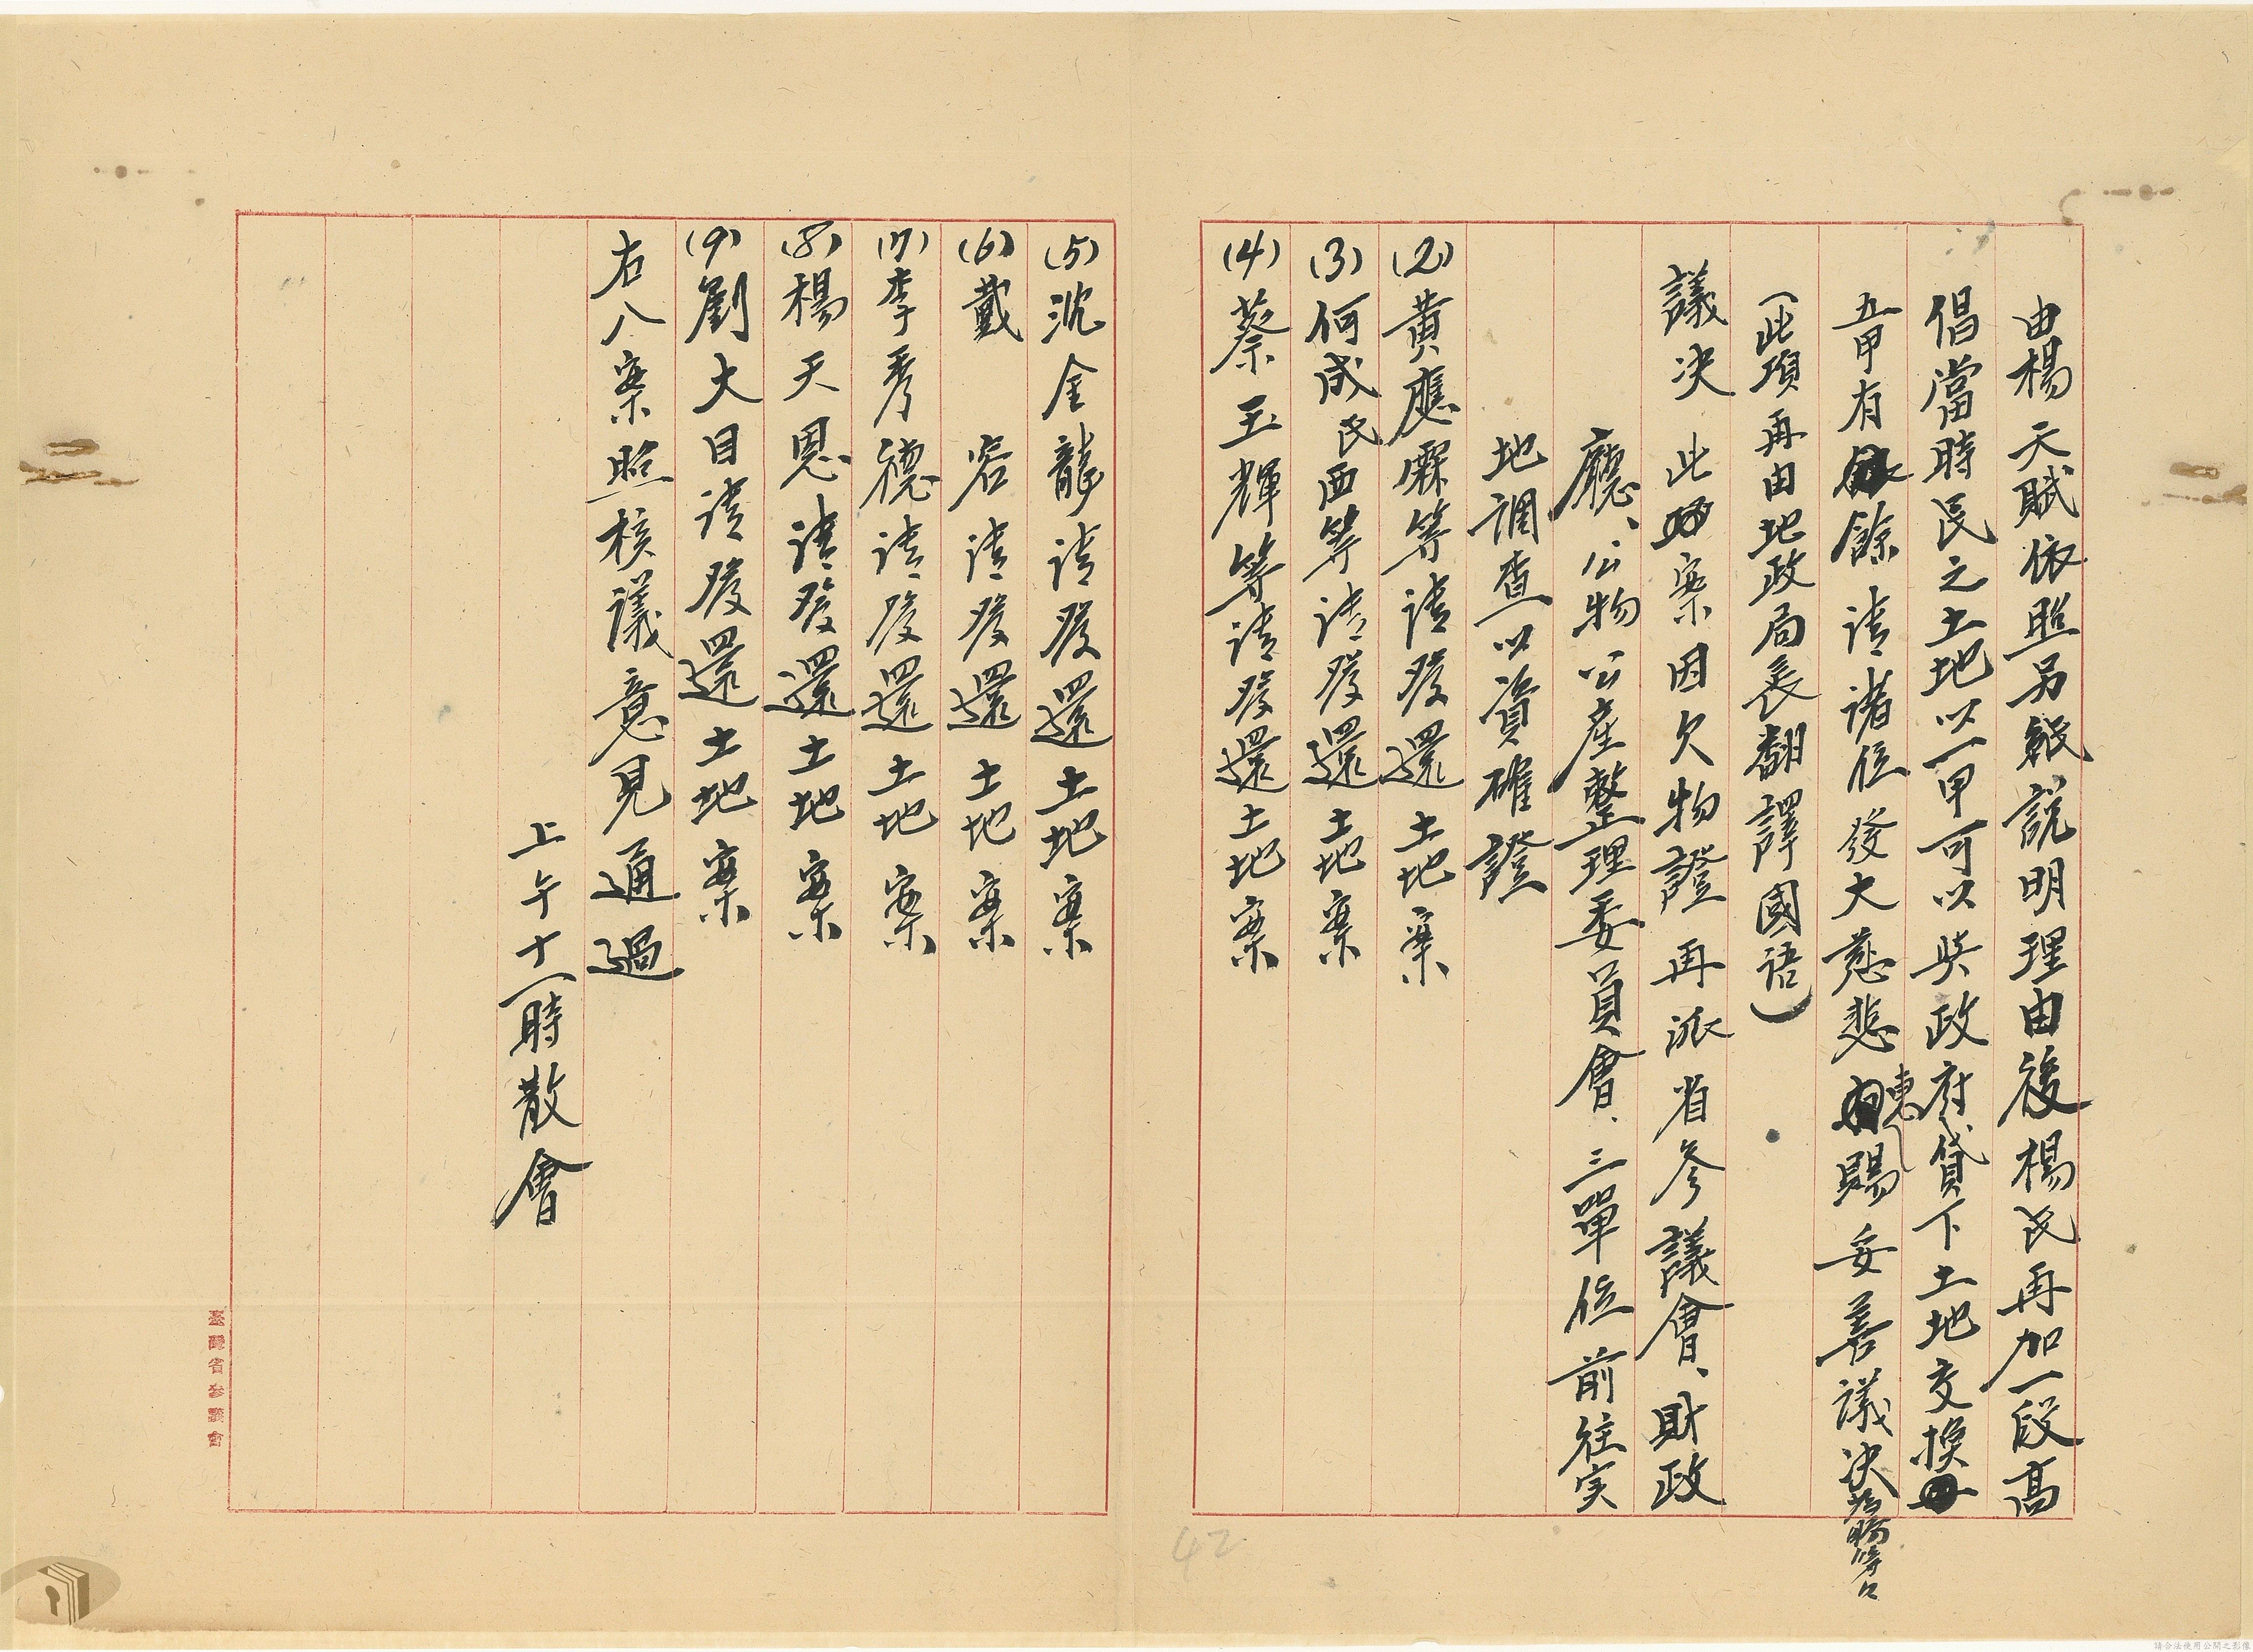 由楊天賦依照另報說明理由後楊民再加一段高
倡當時民之土地以一甲可以與政府貸下土地交換
五甲有餘請諸位發大慈悲惠賜妥善議決為禱等々
(此項再由地政局長翻譯國語)
議決 此案因欠物證再派省參議會、財政
廳、公物公產整理委員會、三單位前往实
地調查以資確證
(2)黃應霖等請發還土地案
(3)何咸民西等請發還土地案
(4)蔡玉輝等請發還土地案
(5)沈金龍請發還土地案
(6)戴 容請發還土地案
(7)李秀德請發還土地案
(8)楊天恩請發還土地案
(9)劉大目請發還土地案
右八案照核議意見通過
上午十一時散會
臺灣省參議會
42
請合法使用公開之影像